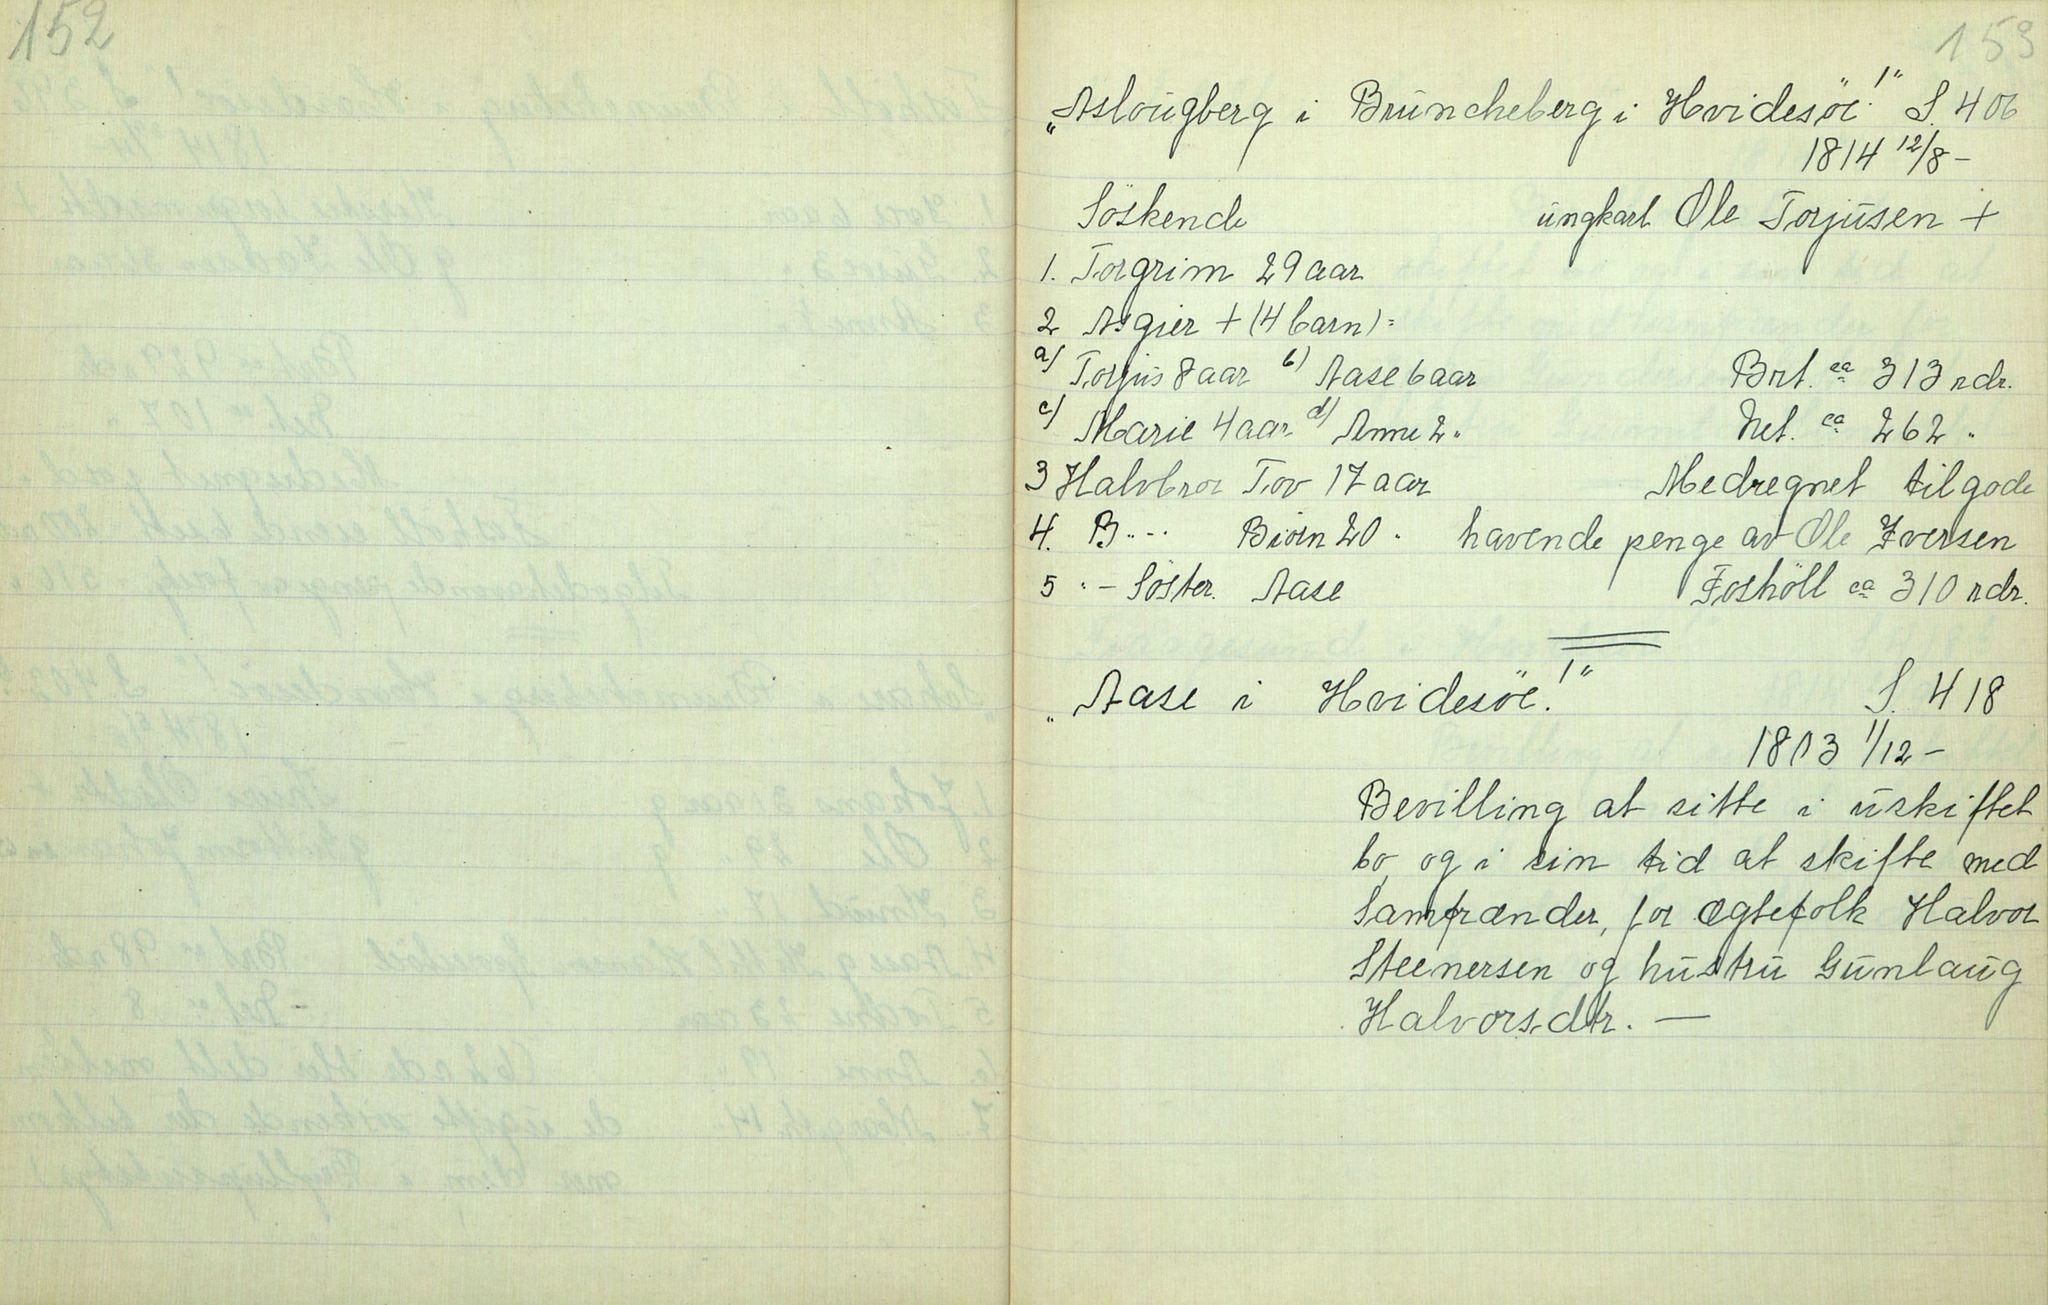 152
153
"Aslougberg i Bruncheberg i Hvidesöe!" S. 406
1814 12/8 -
Söskende ungkarl Ole Torjusen +
1. Torgrim 29 aar
2 Asgier + (4 barn) :
a) Torjus 8 aar b) Aase 6 aar Brt. ca 313 rdr.
c) Marie 4 aar d) Anne 2 " Net. ca 262 "
3 Halvbror Tov 17 aar Medregnet tilgode
4. B.. - .. Biörn 20 " havende penge av Ole Iversen
5 " - Söster. Aase Foshöll ca 310 rdr.
"Aase i Hvidesöe!" S. 418
1803 1/12 -
Bevilling at sitte i uskiftet
bo, og i sin tid at skifte med
Samfrænder, for ægtefolk Halvor
Steenersen og hustru Gunlaug
Halvorsdtr. -